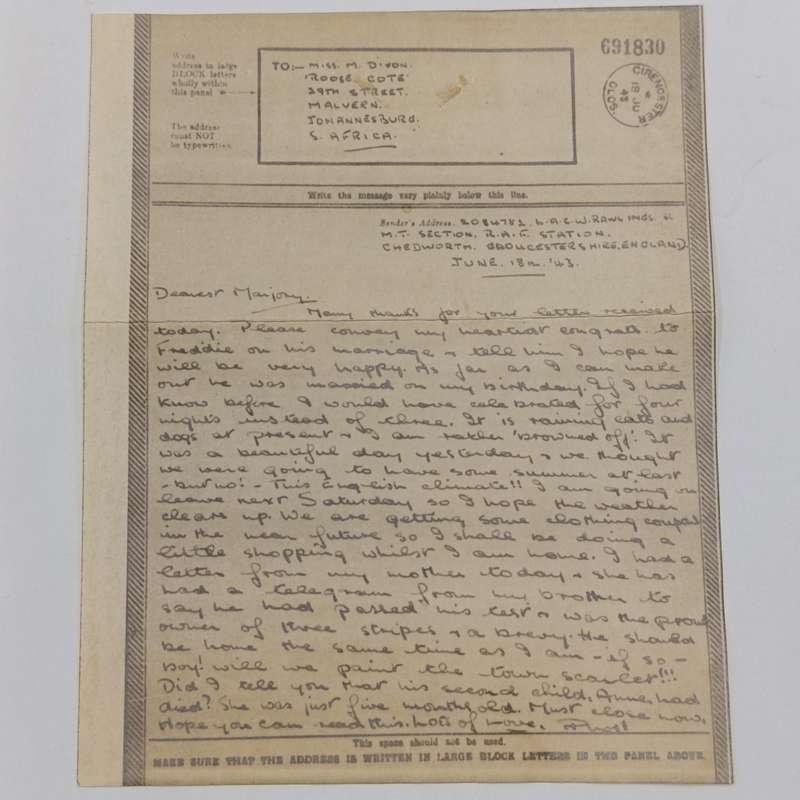 691830
CIRENCESTER
18 JU
43
GLOS.
Write
address in large
BLOCK letters
wholly within
this panel
The address
must NOT
be typewritten
TO:- MISS. M. DIXON.
'ROOSE COTE'
29TH STREET.
MALVERN.
JOHANNESBURG.
S. AFRICA.
Write the message very plainly below this line.
Sender's Address. 2084782, L.A.C.W. RAWLINGS.
M.T. SECTION, R.A.F. STATION.
CHEDWORTH. GLOUCESTERSHIRE, ENGLAND
JUNE. 18th. '43.
Dearest Marjory.
Many thanks for your letter received
today. Please convey my heartiest congrats. to
Freddie on his marriage & tell him I hope he
will be very happy. As far as I can make
out he was married on my birthday. If I had
know before I would have celebrated for four
nights instead of three. It is raining cats and
dogs at present & I am rather 'browned off'. It
was a beautiful day yesterday & we thought
we were going to have some summer at last
- but no! - This English climate!! I am going on
leave next Saturday so I hope the weather
clears up. We are getting some clothing coupons
in the near future so I shall be doing a
little shopping whilst I am home. I had a
letter from my mother today & she has
had a telegram from my brother to
say he had passed his test & was the proud
owner of three stripes & a brevy. He should
be home the same time as I am - if so -
boy! will we paint the town scarlet!!!
Did I tell you that his second child, Anne, had
died? She was just five months old. Must close now.
Hope you can read this. Lots of Love.
This space should not be used.
MAKE SURE THAT THE ADDRESS IS WRITTEN IN LARGE BLOCK LETTERS IN THE PANEL ABOVE.